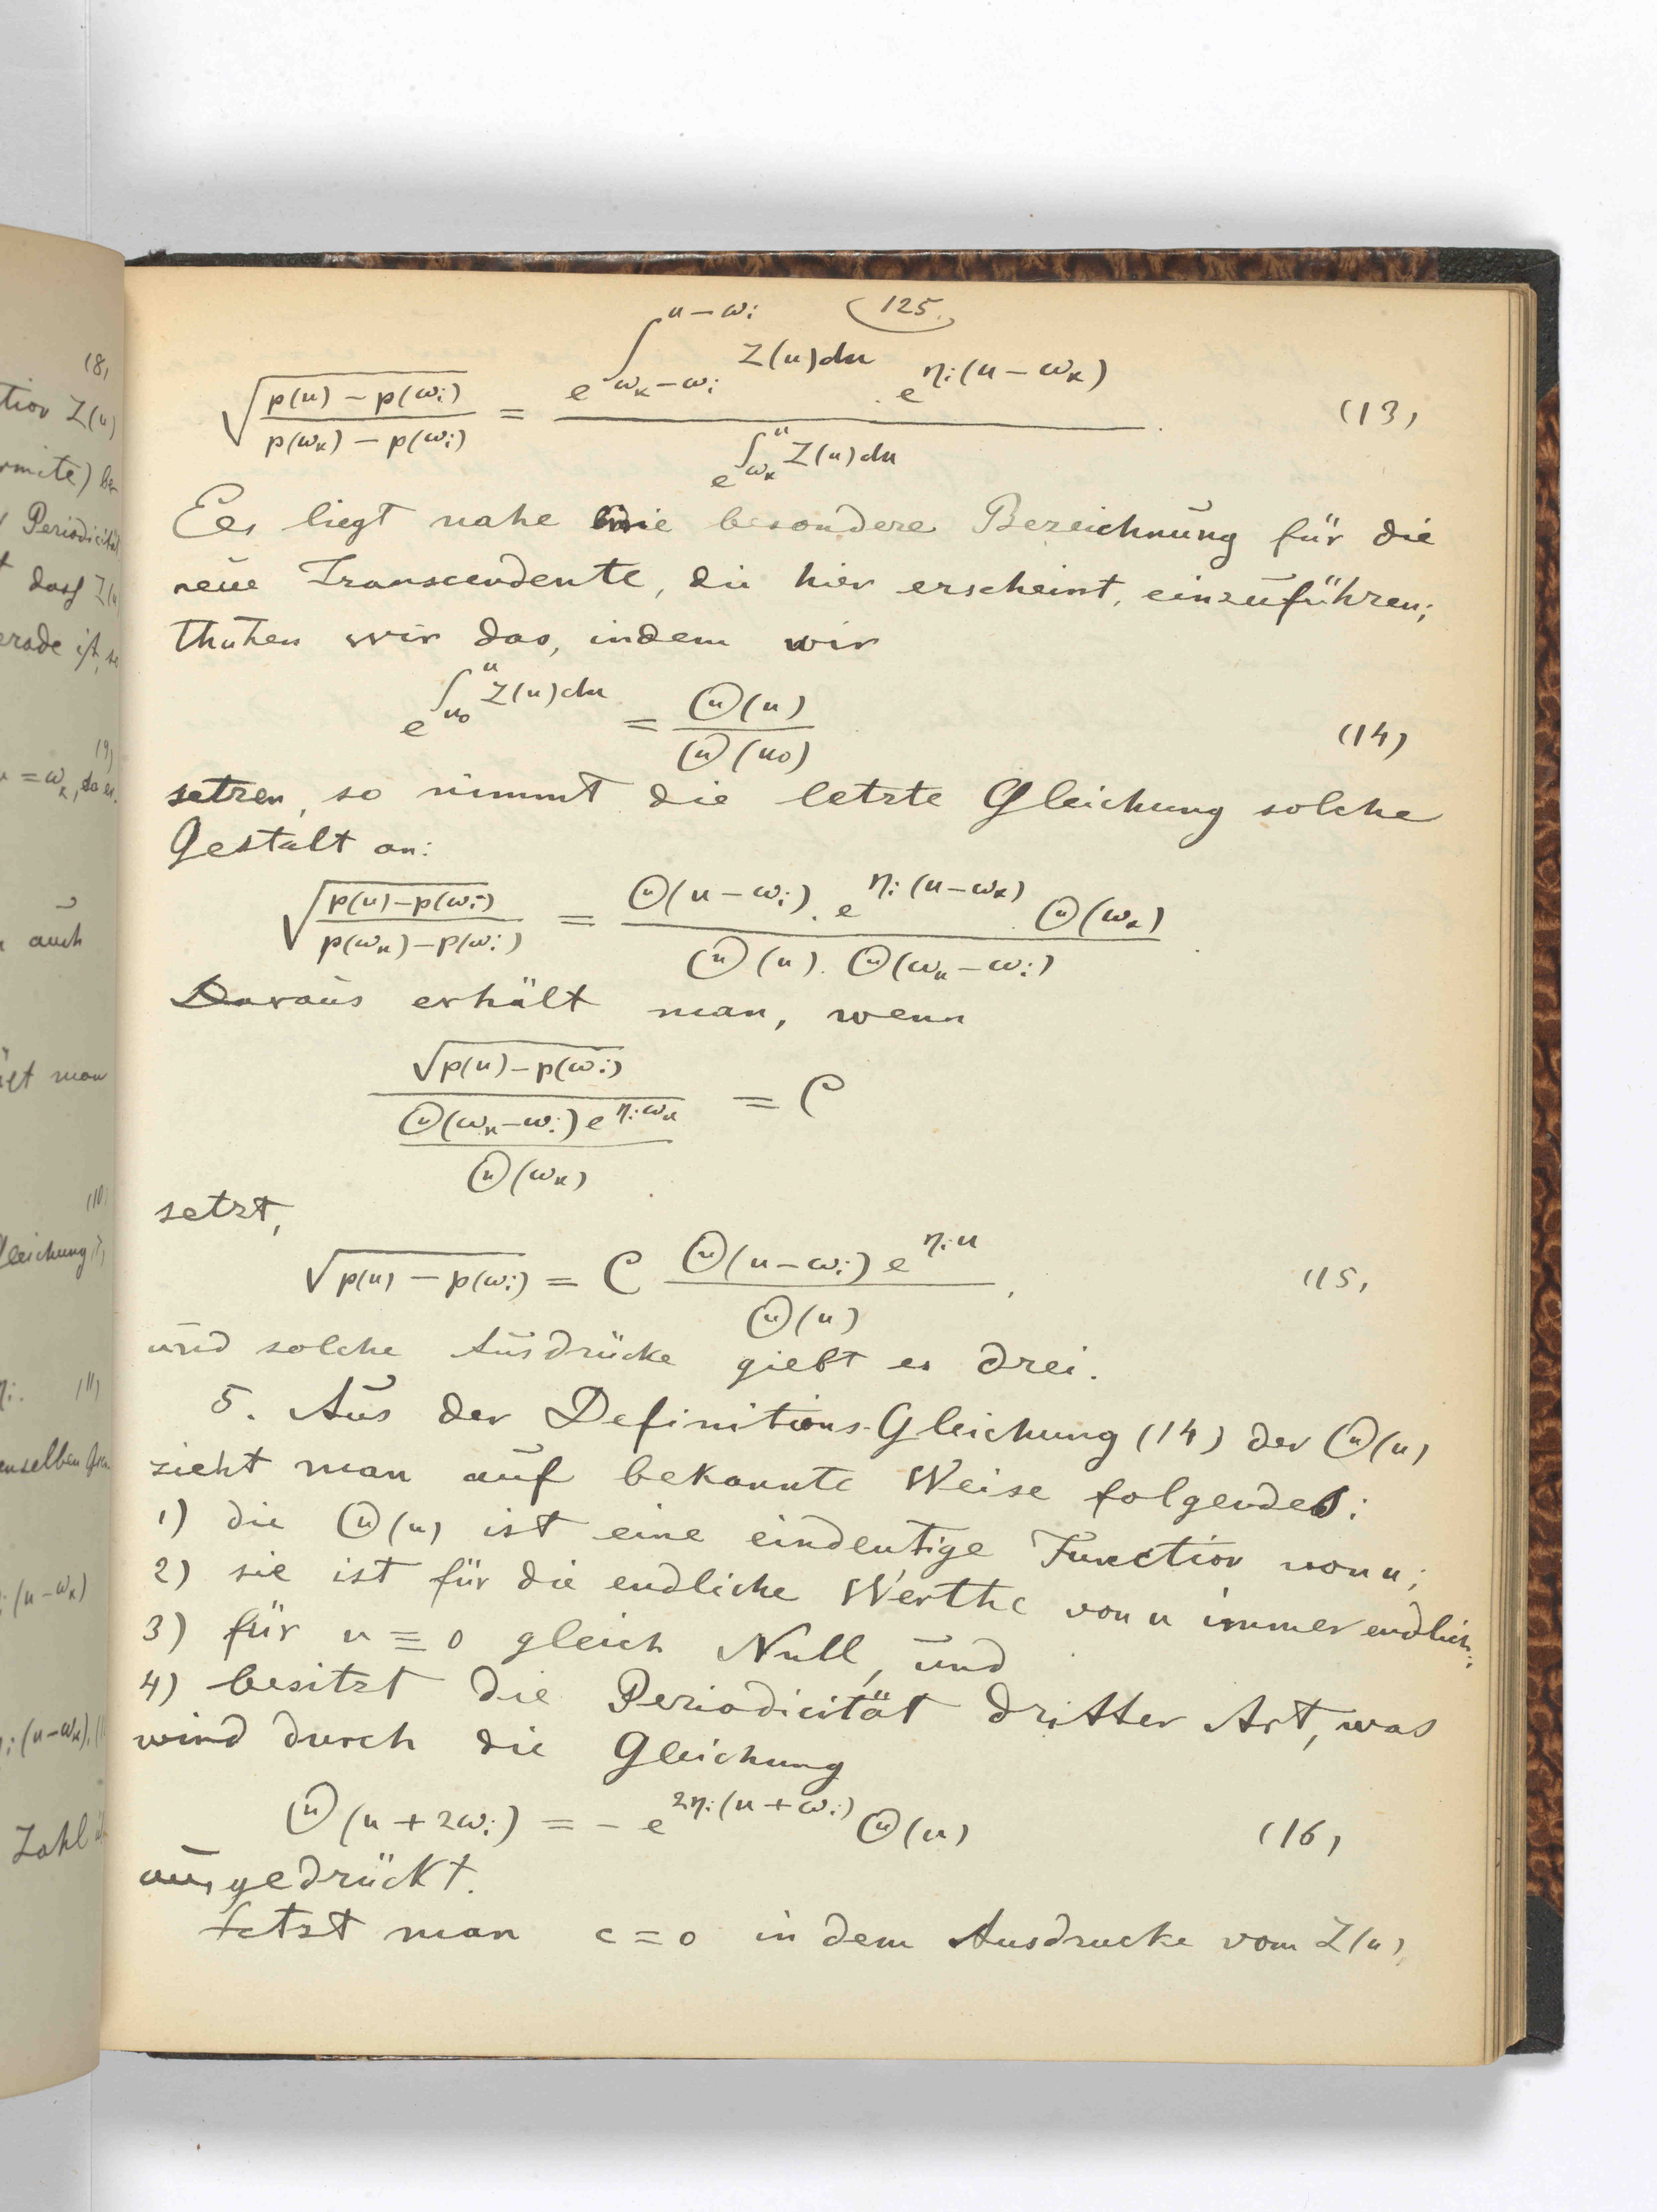 125.
$\sqrt{\frac{p(u) - p(\omega_i)}{p(\omega_k) - p(\omega_i)}} = \frac{e^{\int_{\omega_k - \omega_i}^{u - \omega_i} Z(u)du} \cdot e^{\eta_i(u - \omega_k)}}{e^{\int_{\omega_k}^{u} Z(u)du}}.$ (13)
Ees liegt nahe eine besondere Bezeichnung für die
neue Transcendente, die hier erscheint, einzuführen;
thuhen wir das, indem wir
$e^{\int_{u_0}^{u} Z(u)du} = \frac{\Theta(u)}{\Theta(u_0)}$ (14)
setzen, so nimmt die letzte Gleichung solche
Gestalt an:
$\sqrt{\frac{p(u) - p(\omega_i)}{p(\omega_k) - p(\omega_i)}} = \frac{\Theta(u - \omega_i) \cdot e^{\eta_i(u - \omega_k)} \cdot \Theta(\omega_k)}{\Theta(u) \cdot \Theta(\omega_k - \omega_i)}.$
Daraus erhält man, wenn
$\frac{\sqrt{p(u) - p(\omega_i)}}{\frac{\Theta(\omega_k - \omega_i) e^{\eta_i \omega_k}}{\Theta(\omega_k)}} = C$
setzt,
$\sqrt{p(u) - p(\omega_i)} = C \frac{\Theta(u - \omega_i) e^{\eta_i u}}{\Theta(u)},$ (15)
und solche Ausdrücke giebt es drei.
5. Aus der Definitions-Gleichung (14) der Θ(u)
zieht man auf bekannte Weise folgendes:
1) die Θ(u) ist eine eindeutige Function von u;
2) sie ist für die endliche Werthe von u immer endlich;
3) für u ≡ 0 gleich Null, und
4) besitzt die Periodicität dritter Art, was
wird durch die Gleichung
$\Theta(u + 2\omega_i) = - e^{2\eta_i(u + \omega_i)} \Theta(u)$ (16)
ausgedrückt.
Setzt man c = 0 in dem Ausdrucke vom Z(u),
(8)
tion Z(u)
rmite)
Periodicität
dass
erade ist, so
(9)
auch
man
(10)
Gleichung
(11)
enselben
(u-ω_k)
(u-ω_k),
Zahl